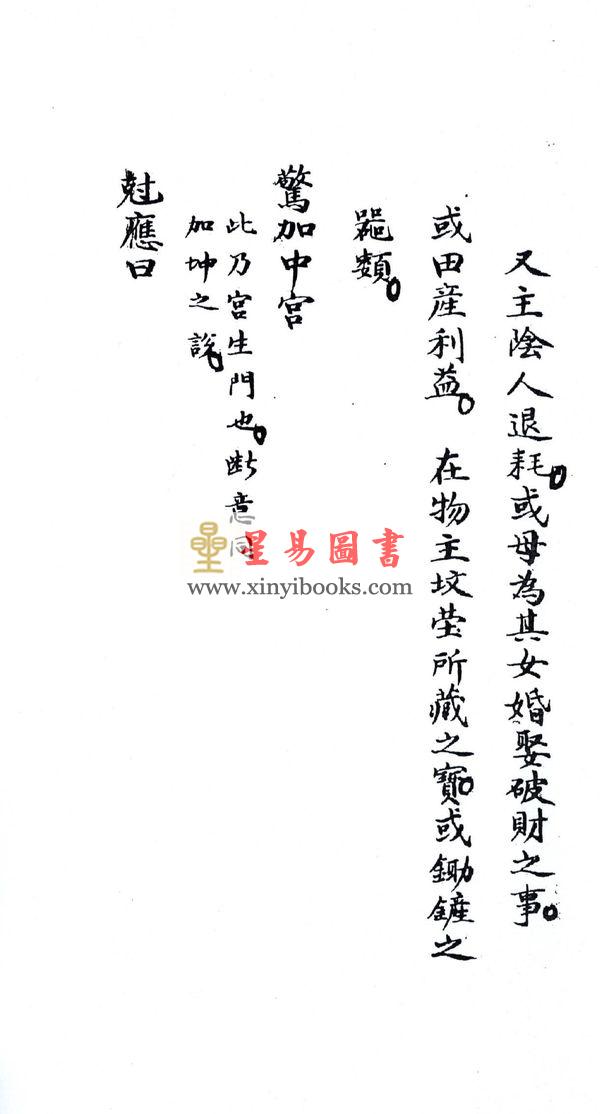 又主陰人退耗。或母為其女婚娶破財之事。
或田產利益。 在物主坟茔所藏之寶。或鋤鏟之
噐類。
驚加中宮
此乃宮生門也。断意同
加坤之說。
尅應曰
星易圖書
www.xinyibooks.com